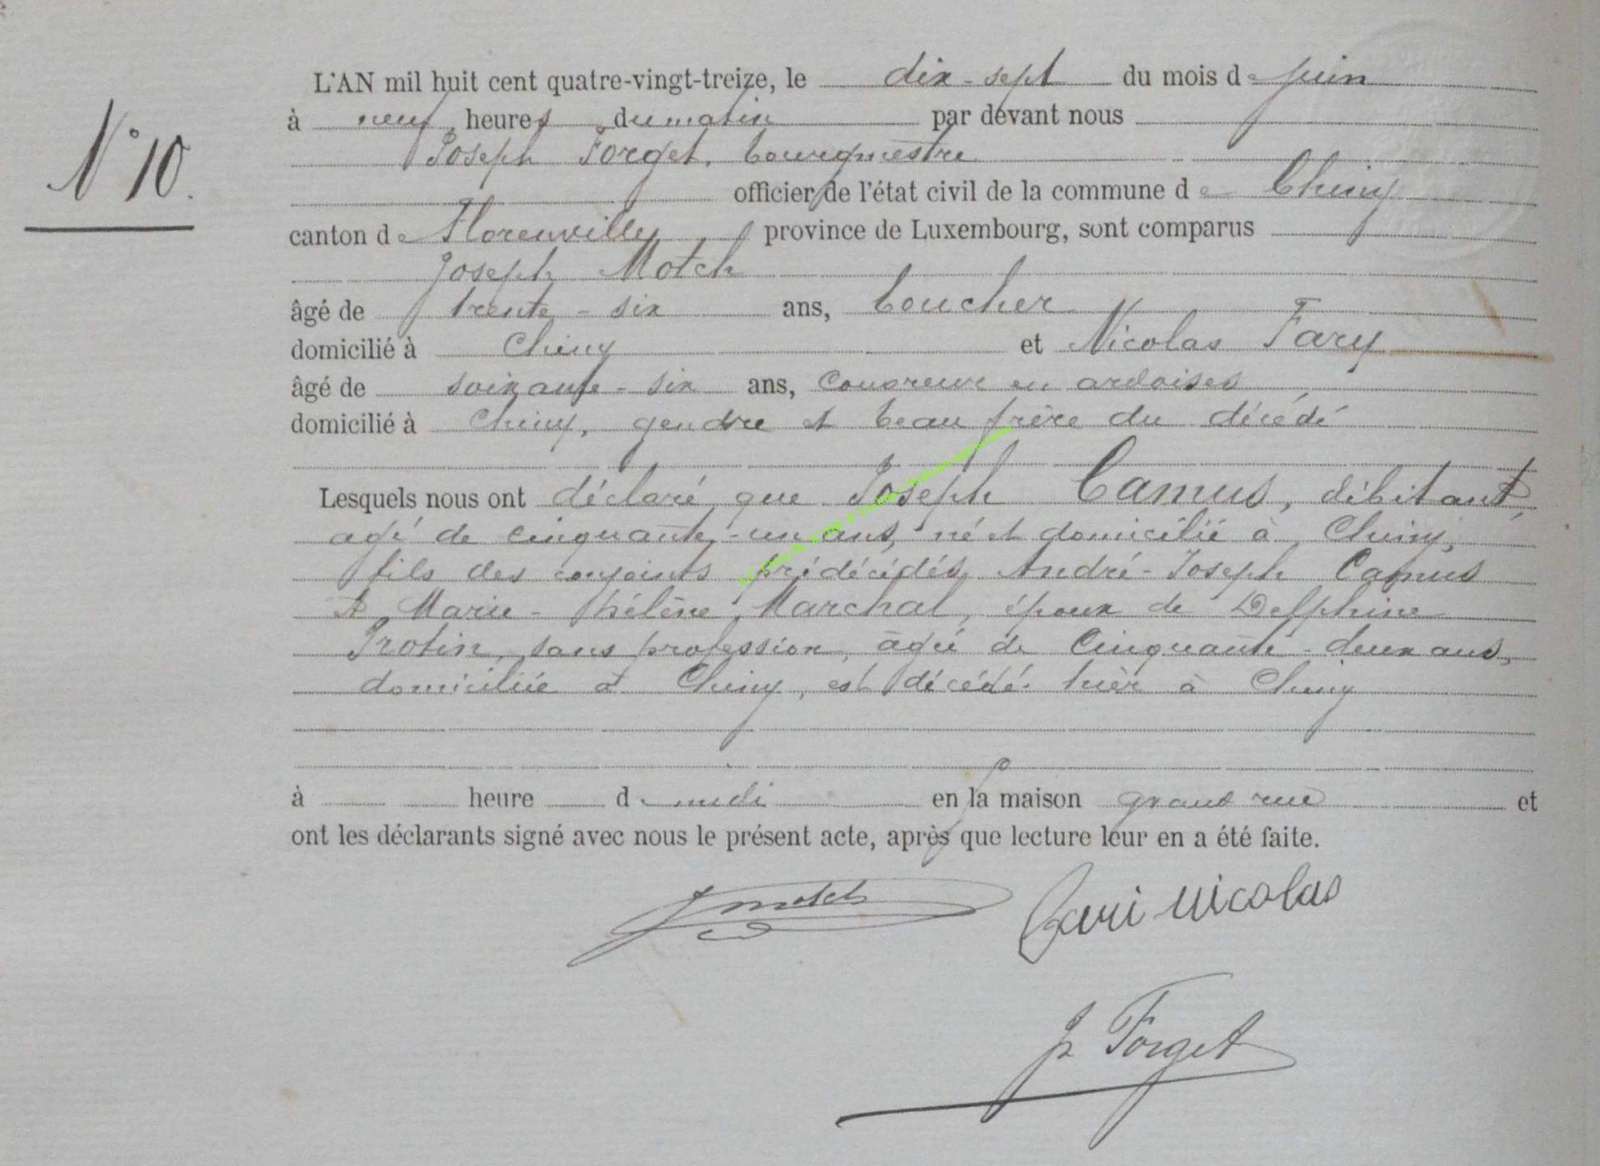 N° 10.
L'AN mil huit cent quatre-vingt-treize, le dix-sept du mois de juin
à neuf heures du matin par devant nous
Joseph Forget, bourgmestre
officier de l'état civil de la commune de Chiny
canton de Florenville province de Luxembourg, sont comparus
Joseph Motch
âgé de trente-six ans, boucher
domicilié à Chiny et Nicolas Fary
âgé de soixante-six ans, couvreur en ardoises
domicilié à Chiny, gendre et beau frère du décédé
Lesquels nous ont déclaré que Joseph Camus, débitant,
agé de cinquante-un ans, né et domicilié à Chiny,
fils des conjoints prédécédés André-Joseph Camus
et Marie-Hélène Marchal, époux de Delphine
Protin, sans profession, âgée de cinquante-deux ans,
domiciliée à Chiny, est décédé hier à Chiny
à heure de midi en sa maison grand rue et
ont les déclarants signé avec nous le présent acte, après que lecture leur en a été faite.
J Motch Fari Nicolas
J Forget